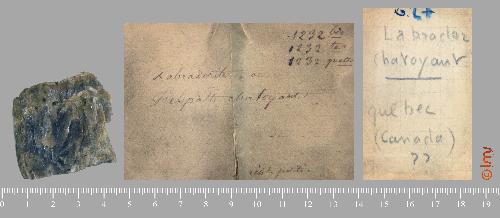 1232 bis
1232 ter
1232 quater
Labradorite ou
Feldspath chatoyant
G. L7
Labrador
chatoyant
québec
(Canada)
??
0 1 2 3 4 5 6 7 8 9 10 11 12 13 14 15 16 17 18 19